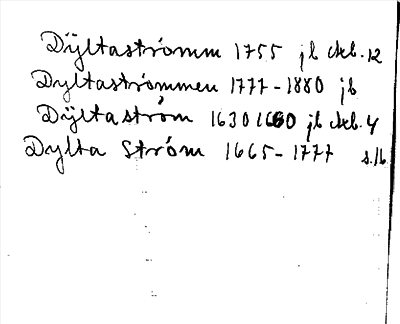 Dÿltaströmm 1755 jb Akb. 12
Dyltaströmmen 1777-1880 jb
Dÿltaström 1630 1660 jb Akb. 4
Dylta Ström 1665-1777 s. 16